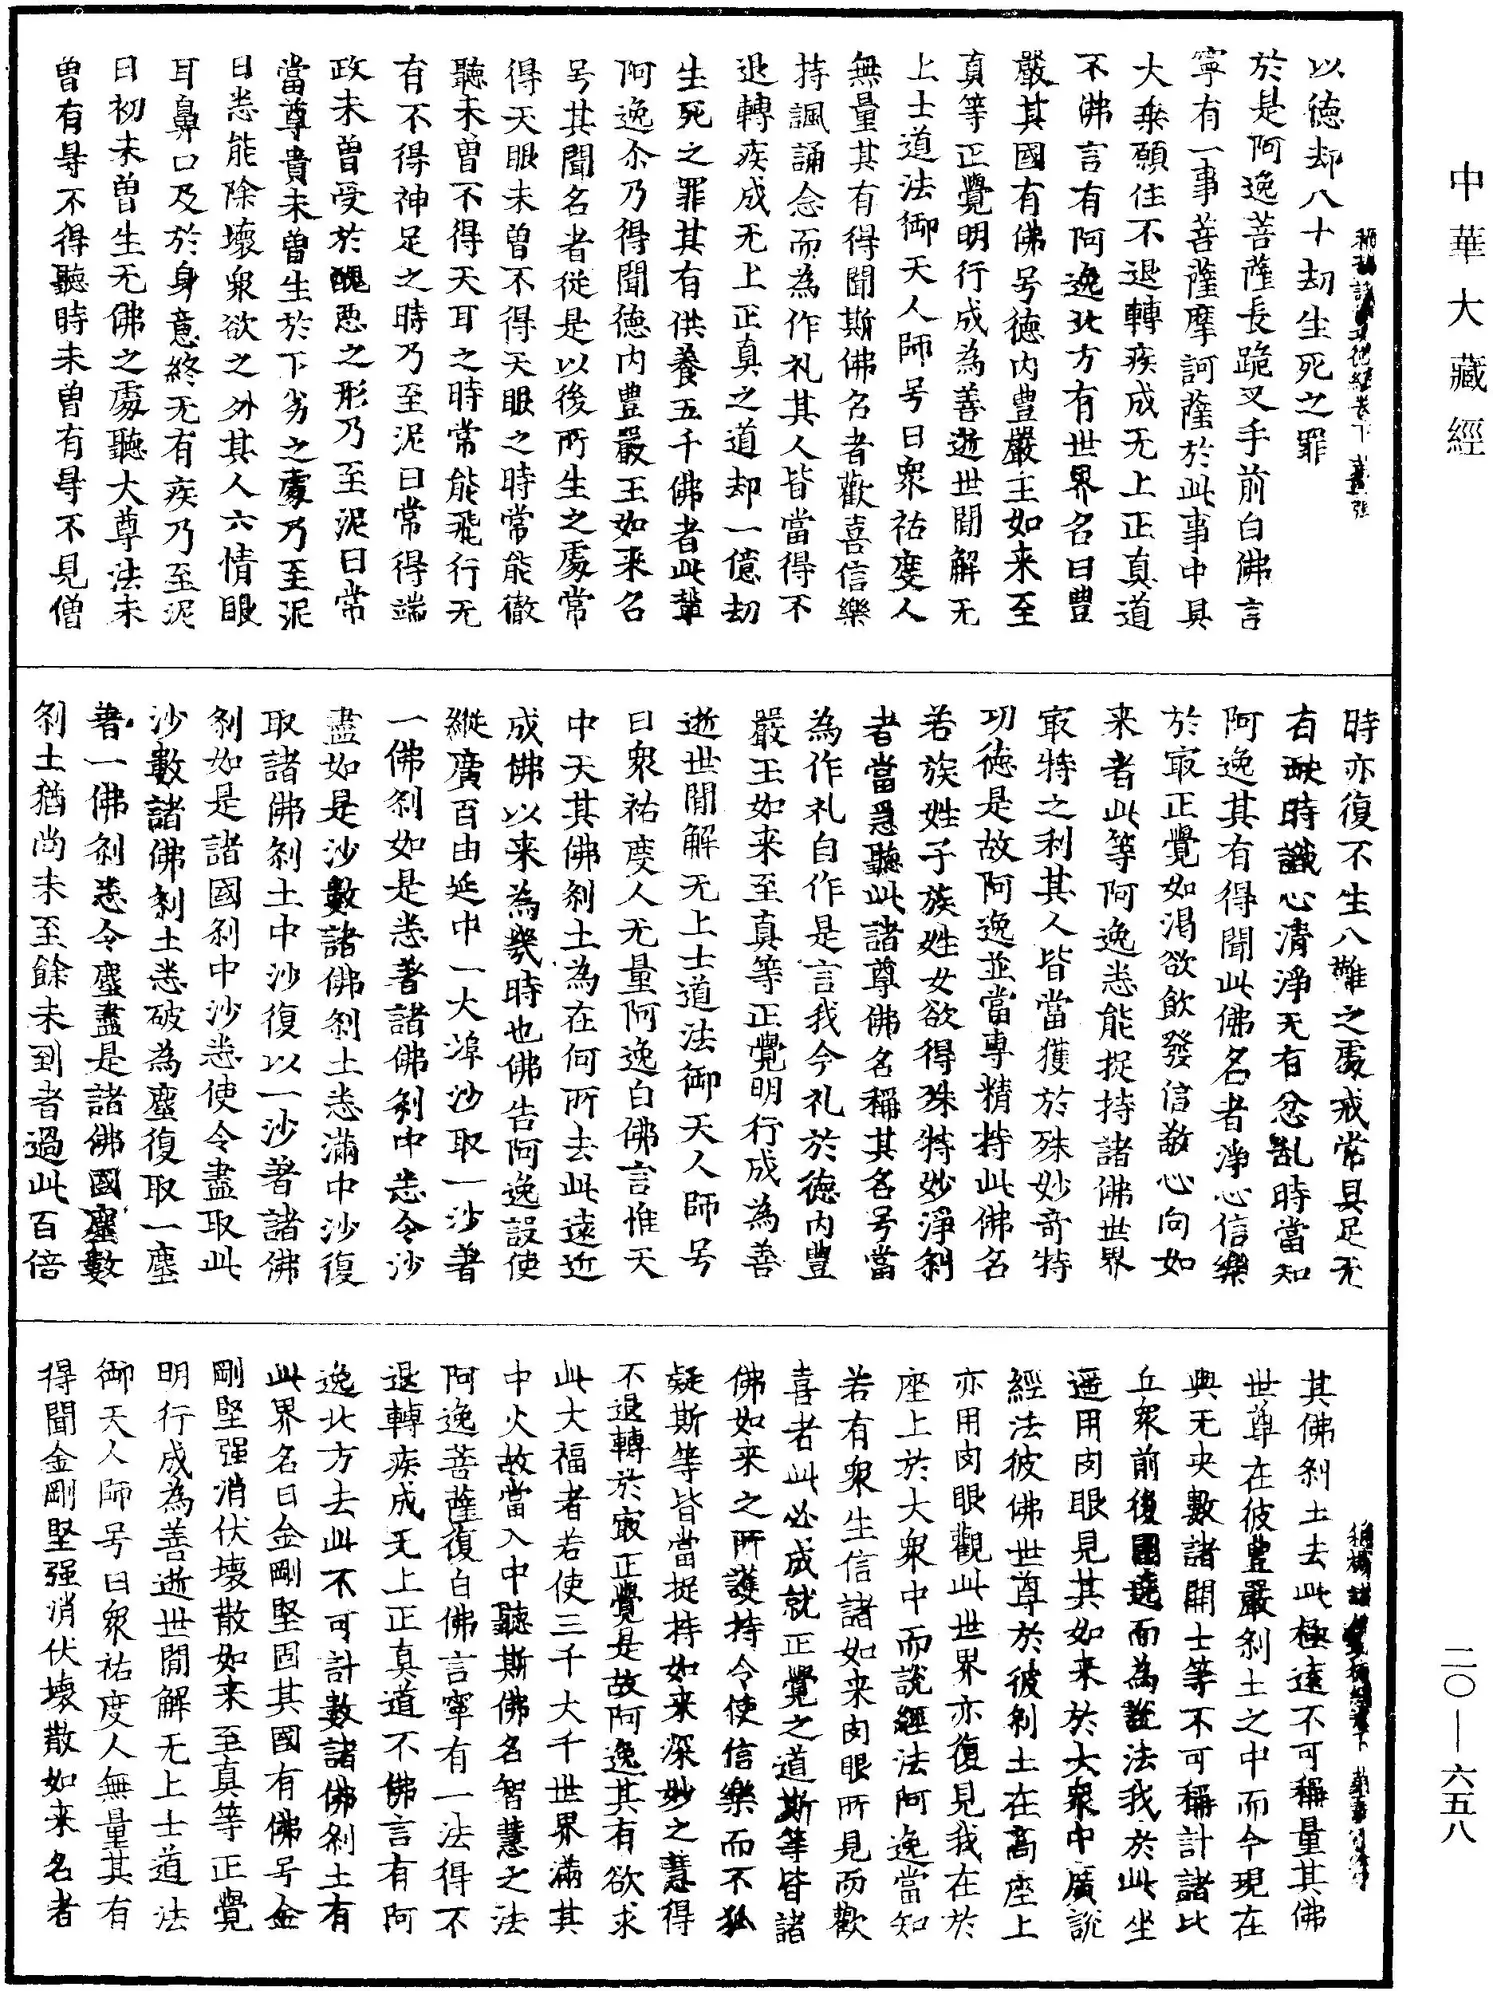 中華大藏經
以德却八十劫生死之罪
於是阿逸菩薩長跪叉手前白佛言
寧有一事菩薩摩訶薩於此事中具
大乘願住不退轉疾成无上正真道
不佛言有阿逸北方有世界名曰豊
嚴其國有佛号德内豊嚴王如来至
真等正覺明行成為善逝世間解无
上士道法御天人師号曰衆祐度人
無量其有得聞斯佛名者歡喜信樂
持諷誦念而為作礼其人皆當得不
退轉疾成无上正真之道却一億劫
生死之罪其有供養五千佛者此輩
阿逸尒乃得聞德内豊嚴王如来名
号其聞名者從是以後所生之處常
得天眼未曾不得天眼之時常能徹
聽未曾不得天耳之時常能飛行无
有不得神足之時乃至泥曰常得端
政未曾受於醜惡之形乃至泥曰常
當尊貴未曾生於下劣之處乃至泥
曰悉能除壞衆欲之外其人六情眼
耳鼻口及於身意終无有疾乃至泥
曰初未曾生无佛之處聽大尊法未
曽有㝵不得聽時未曽有㝵不見僧
時亦復不生八難之處戒常具足无
有缺時識心清淨无有忿亂時當知
阿逸其有得聞此佛名者淨心信樂
於㝡正覺如渴欲飲發信敬心向如
来者此等阿逸悉能捉持諸佛世界
㝡特之利其人皆當獲於殊妙奇特
功德是故阿逸並當專精持此佛名
若族姓子族姓女欲得殊特妙淨刹
者當急聽此諸尊佛名稱其名号當
為作礼自作是言我今礼於德内豊
嚴王如来至真等正覺明行成為善
逝世間解无上士道法御天人師号
曰衆祐度人无量阿逸白佛言惟天
中天其佛刹土為在何所去此遠近
成佛以来為幾時也佛告阿逸設使
縱廣百由延中一大𡋯沙取一沙著
一佛刹如是悉著諸佛刹中悉令沙
盡如是沙數諸佛刹土悉滿中沙復
取諸佛刹土中沙復以一沙著諸佛
刹如是諸國刹中沙悉使令盡取此
沙數諸佛刹土悉破為塵復取一塵
著一佛刹悉令塵盡是諸佛國塵數
刹土猶尚未至餘未到者過此百倍
其佛刹土去此極遠不可稱量其佛
世尊在彼豊嚴刹土之中而今現在
與无央數諸開士等不可稱計諸比
丘衆前後圍遶而為說法我於此坐
遥用肉眼見其如来於大衆中廣說
經法彼佛世尊於彼刹土在高座上
亦用肉眼觀此世界亦復見我在於
座上於大衆中而說經法阿逸當知
若有衆生信諸如来肉眼所見而歡
喜者此必成就正覺之道斯等皆諸
佛如来之所護持令使信樂而不狐
疑斯等皆當捉持如来深妙之慧得
不退轉於㝡正覺是故阿逸其有欲求
此大福者若使三千大千世界滿其
中火故當入中聽斯佛名智慧之法
阿逸菩薩復白佛言寧有一法得不
退轉疾成无上正真道不佛言有阿
逸北方去此不可計數諸佛刹土有
此界名曰金剛堅固其國有佛号金
剛堅强消伏壞散如来至真等正覺
明行成為善逝世間解无上士道法
御天人師号曰衆祐度人無量其有
得聞金剛堅强消伏壞散如来名者
二〇—六五八